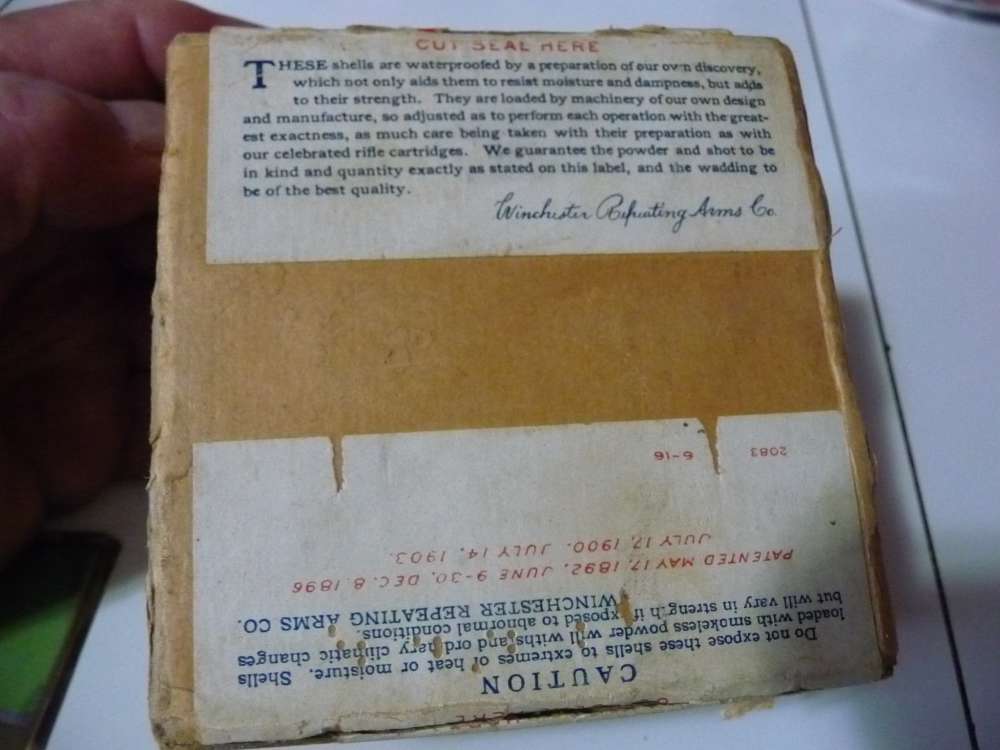 CUT SEAL HERE
THESE shells are waterproofed by a preparation of our own discovery,
which not only aids them to resist moisture and dampness, but adds
to their strength. They are loaded by machinery of our own design
and manufacture, so adjusted as to perform each operation with the great-
est exactness, as much care being taken with their preparation as with
our celebrated rifle cartridges. We guarantee the powder and shot to be
in kind and quantity exactly as stated on this label, and the wadding to
be of the best quality.
Winchester Repeating Arms Co.
CAUTION
Do not expose these shells to extremes of heat or moisture. Shells
loaded with smokeless powder will withstand ordinary climatic changes
but will vary in strength if exposed to abnormal conditions.
WINCHESTER REPEATING ARMS CO.
PATENTED MAY 17, 1892. JUNE 9-30, DEC. 8, 1896
JULY 17, 1900. JULY 14, 1903.
2083 6-16